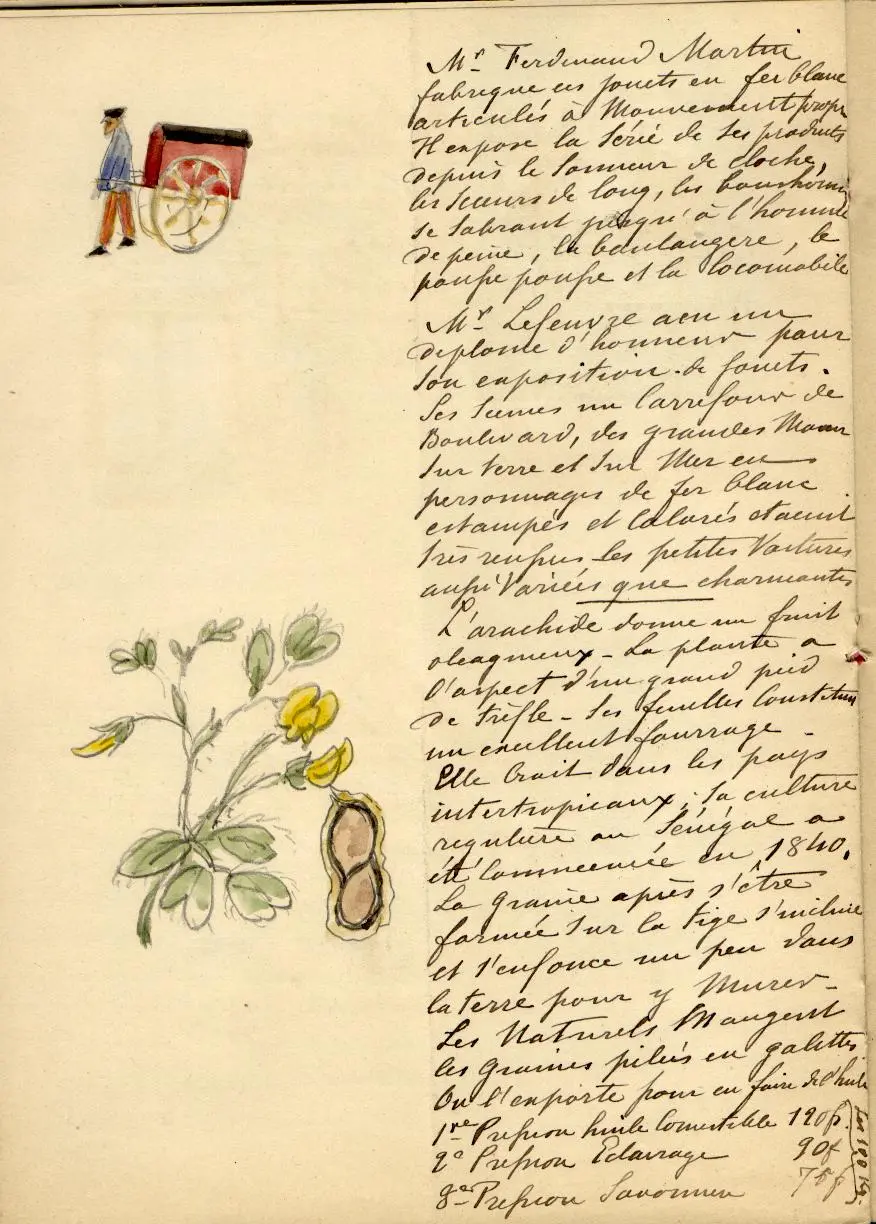 Mr Ferdinand Martin
fabrique ces jouets en fer blanc
articulés à Mouvement propr
Il expose la Série de ses produits
depuis le Sonneur de cloche,
les Scieurs de long, les bonshommes
se Sabrant jusqu'à l'homme
de peine, la boulangère, le
poupe poupe et la locomobile
Mr Lefeuvre a eu un
diplome d'honneur pour
son exposition de jouets.
Ses Scènes un Carrefour de
Boulevard, des grandes Manœu
Sur terre et Sur Mer en
personnages de fer blanc
estampés et Colorés étaient
très les petites Voitures
aussi Variées que charmantes
L'arachide donne un fruit
oleagineux - La plante a
l'aspect d'un grand pied
de Trèfle - Ses feuilles Constituen
un excellent fourrage -
Elle Croit dans les pays
intertropicaux ; Sa culture
regulière au Sénégal a
été Commencée en 1840.
La Graine après s'être
formée Sur la tige s'incline
et s'enfonce un peu dans
la terre pour y Murir -
Les Naturels Mangent
les Graines pilées en galettes.
On l'exporte pour en faire de l'huile
1re Pression huile Comestible 120f.
2e Pression Eclairage 90f
3e Pression Savonnerie 75f
les 100 Kg.